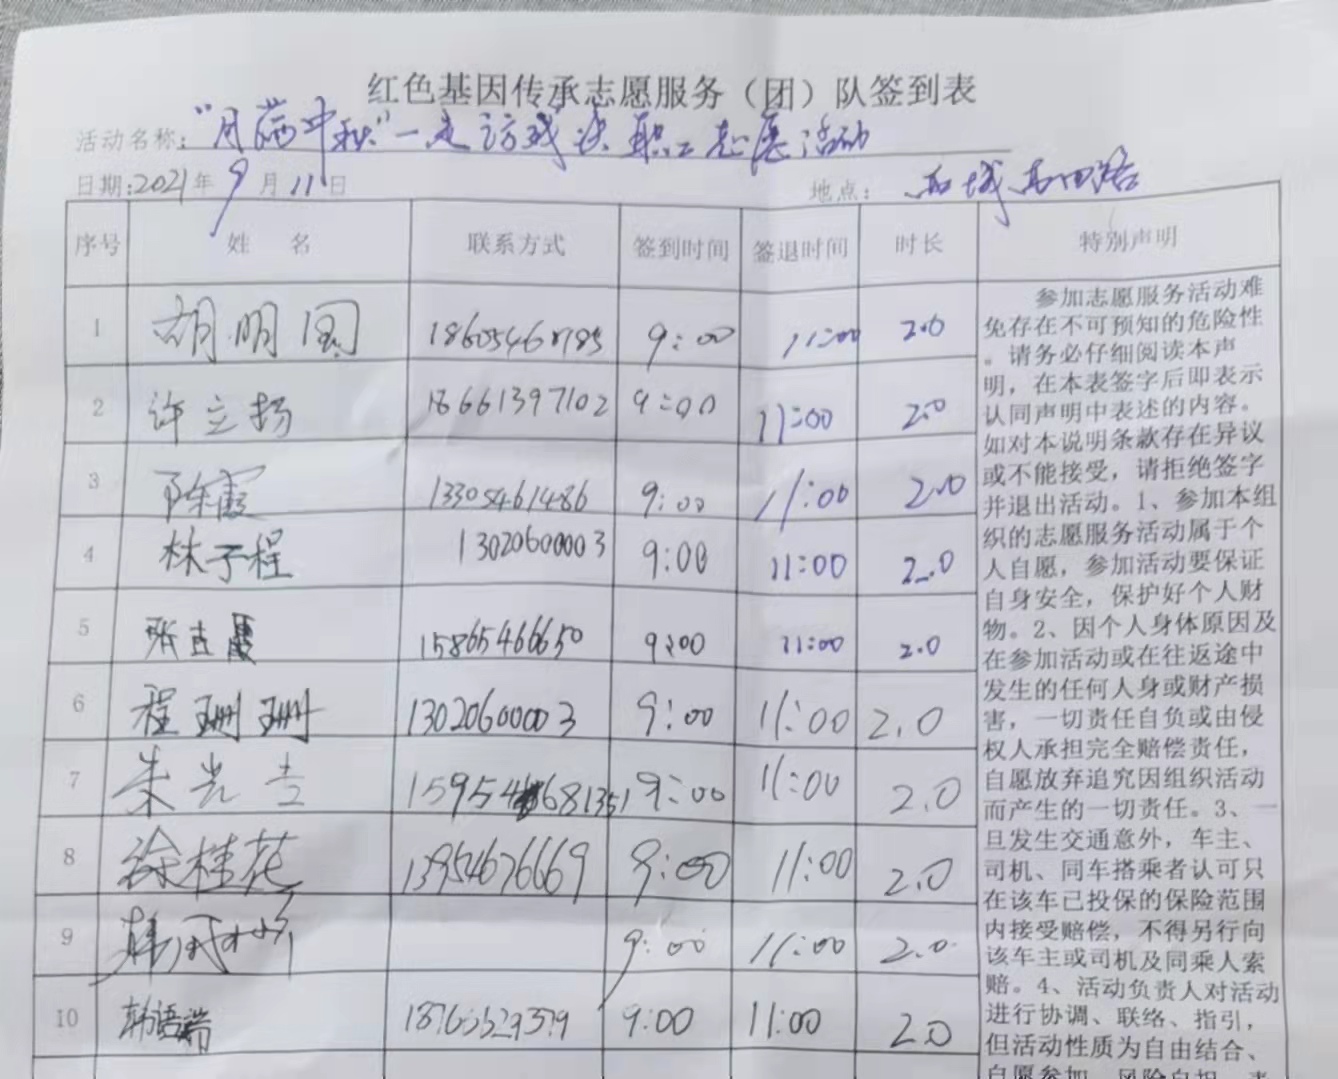 红色基因传承志愿服务（团）队签到表
活动名称："月满中秋"一走访残疾职工志愿活动
日期:2021年9月11日 地点：西城
序号 姓名 联系方式 签到时间 签退时间 时长 特别声明
1 胡明国 9:00 11:00 2.0
2 许立扬 18661397102 9:00 11:00 2.0
3 陈霞 13305461486 9:00 11:00 2.0
4 林子程 13020600003 9:00 11:00 2.0
5 张吉霞 15865466650 9:00 11:00 2.0
6 程珊珊 13020600003 9:00 11:00 2.0
7 朱光吉 9:00 11:00 2.0
8 徐桂花 13954676669 9:00 11:00 2.0
9 9:00 11:00 2.0
10 韩语诺 18763529379 9:00 11:00 2.0
参加志愿服务活动难
免存在不可预知的危险性
。请务必仔细阅读本声
明，在本表签字后即表示
认同声明中表述的内容。
如对本说明条款存在异议
或不能接受，请拒绝签字
并退出活动。1、参加本组
织的志愿服务活动属于个
人自愿，参加活动要保证
自身安全，保护好个人财
物。2、因个人身体原因及
在参加活动或在往返途中
发生的任何人身或财产损
害，一切责任自负或由侵
权人承担完全赔偿责任，
自愿放弃追究因组织活动
而产生的一切责任。3、一
旦发生交通意外，车主、
司机、同车搭乘者认可只
在该车已投保的保险范围
内接受赔偿，不得另行向
该车主或司机及同乘人索
赔。4、活动负责人对活动
进行协调、联络、指引，
但活动性质为自由结合、
自愿参加、风险自担、责